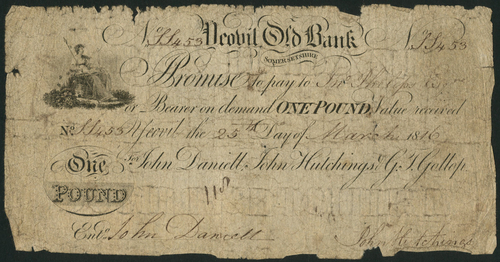 Yeovil Old Bank
SOMERSETSHIRE
I Promise to pay to
or Bearer on demand ONE POUND Value received
Yeovil the 25th Day of March 1816
One For John Daniell, John Hutchings & G. T. Gollop
POUND
Entd. John Daniell
John Hutchings